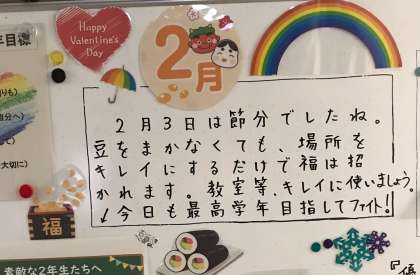 Happy
Valentine's
Day
2月
年目標
2月3日は節分でしたね。
豆をまかなくても、場所を
キレイにするだけで福は招
かれます。教室等、キレイに使いましょう
↓今日も最高学年目指してファイト!!
福
素敵な2年生たちへ